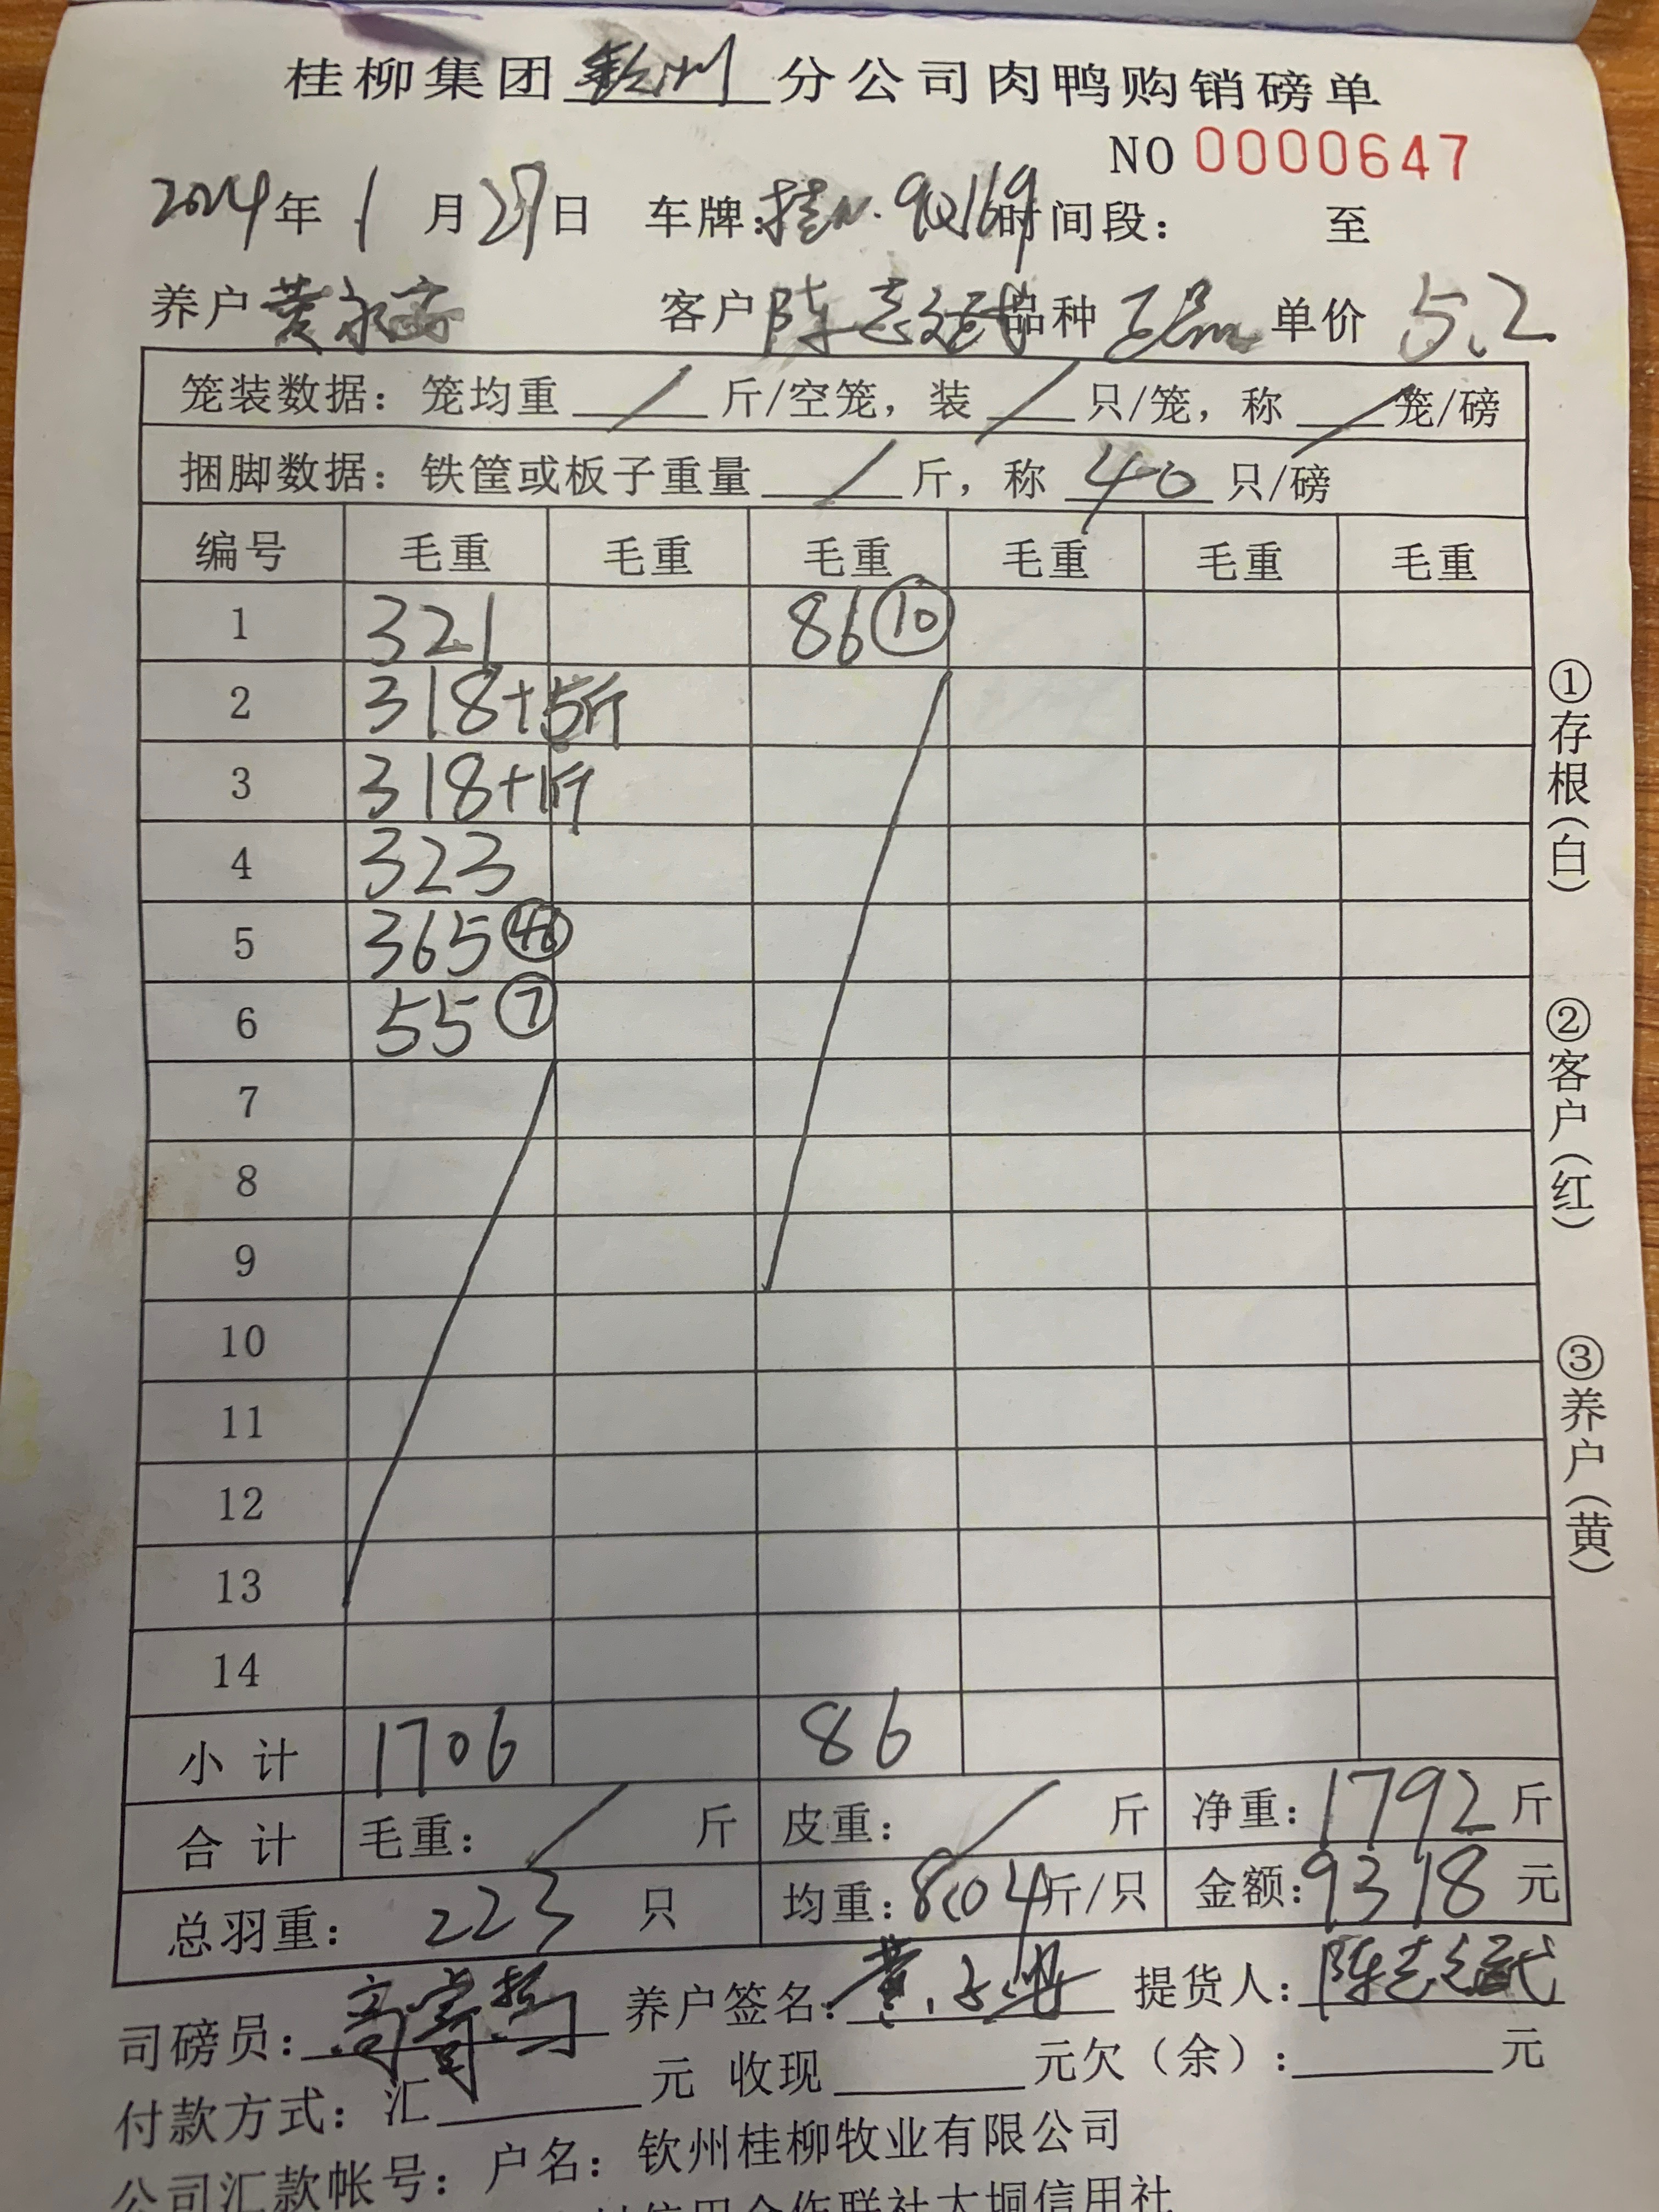 桂柳集团钦州分公司肉鸭购销磅单
NO 0000647
2024年 1月27日 车牌: 桂N· 时间段: 至
养户 黄永 客户 陈志 品种 单价 5.2
笼装数据: 笼均重 / 斤/空笼, 装 / 只/笼, 称 / 笼/磅
捆脚数据: 铁筐或板子重量 / 斤, 称 40 只/磅
编号 毛重 毛重 毛重 毛重 毛重 毛重
1 321 86 ⑩
2 318+5斤
3 318+1斤
4 323
5 365
6 55 ⑦
7
8
9
10
11
12
13
14
小计 1706 86
合计 毛重: / 斤 皮重: / 斤 净重: 1792 斤
总羽重: 223 只 均重: 8.04斤/只 金额: 9318 元
司磅员: 养户签名: 黄 提货人: 陈志
付款方式: 汇 元 收现 元欠(余): 元
公司汇款帐号: 户名: 钦州桂柳牧业有限公司
信用合作联社大垌信用社
①存根(白)
②客户(红)
③养户(黄)